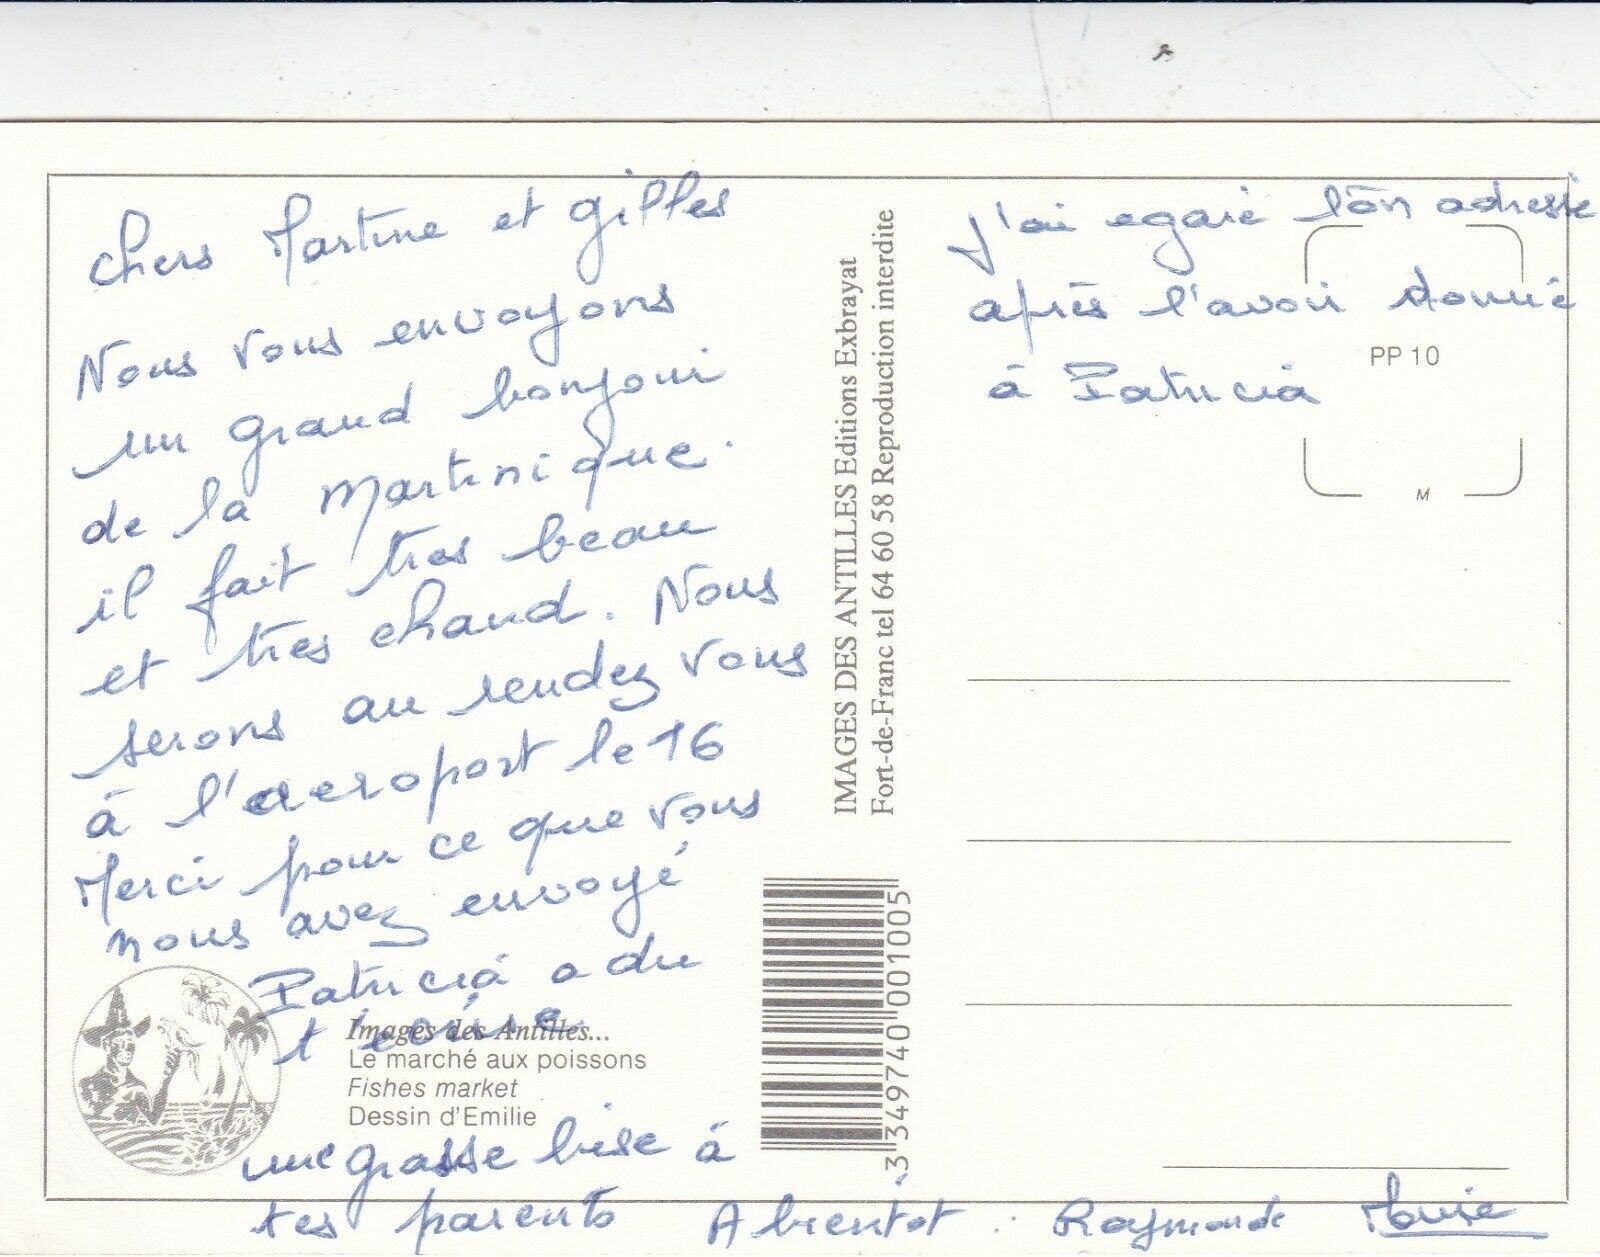 chers Martine et gilles
Nous vous envoyons
un grand bonjour
de la Martinique.
il fait tres beau
et tres chaud. Nous
serons au rendez vous
à l'aeroport le 16
Merci pour ce que vous
nous avez envoyé
Patricia a du
t ecrire
une grosse bise à
tes parents A bientot : Raymonde
Images des Antilles...
Le marché aux poissons
Fishes market
Dessin d'Emilie
IMAGES DES ANTILLES Editions Exbrayat
Fort-de-Franc tel 64 60 58 Reproduction interdite
3 349740 001005
J'ai egaré ton adresse
après l'avoir donné
à Patricia
PP 10
M